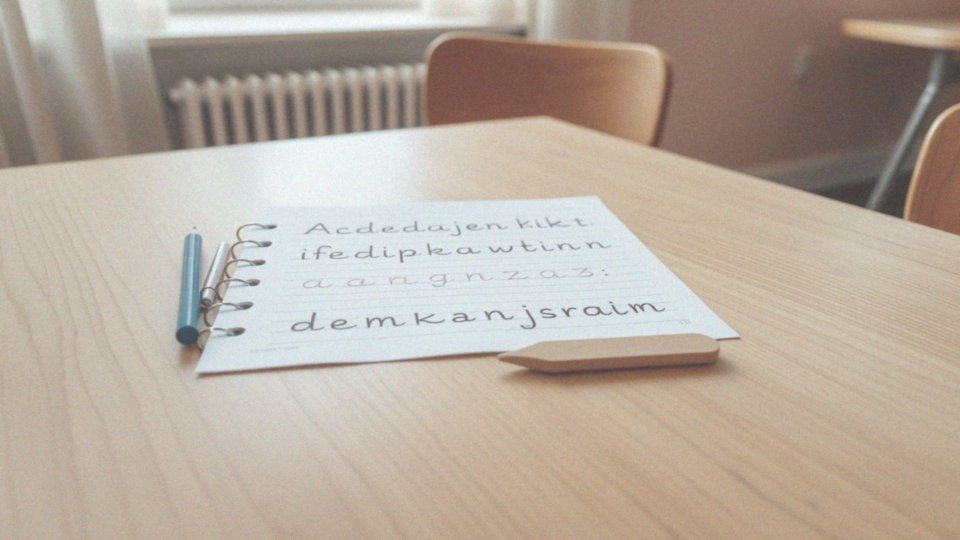 Acdedajen kikt
ifedipkawtinn
a a n g n z a z :
demkanjsraim